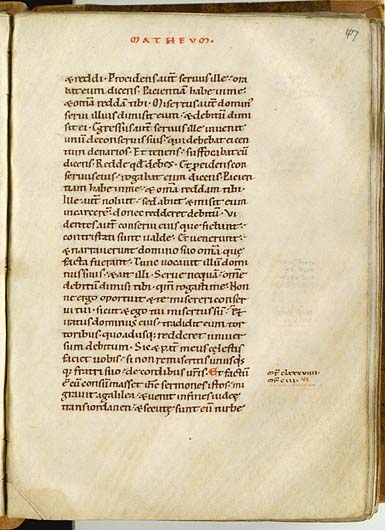 47
MATHEUM.
& reddi. Procidens aut servus ille. ora
bat eum dicens. Pacientiam habe in me.
& omnia reddam tibi. Misertus aut dominus
servi illius dimisit eum. & debitum dimi
sit ei. Egressus aut servus ille invenit
unum de conservis suis. qui debebat ei cen
tum denarios. Et tenens. suffocabat eum
dicens. Redde qd debes. Et procidens con
servus eius. rogabat eum dicens. Pacien
tiam habe in me. & omnia reddam tibi.
Ille aut noluit. sed abiit & misit eum
in carcerem. donec redderet debitum. Vi
dentes aut conservi eius que fiebant.
contristati sunt valde. Et venerunt.
& narraverunt domino suo omnia que
facta fuerant. Tunc vocavit illum domi
nus suus. & ait illi. Serve nequam. omne
debitum dimisi tibi. qm rogasti me. Non
ne ergo oportuit & te misereri conser
vi tui. sicut & ego tui misertus sum. Et
iratus dominus eius. tradidit eum tor
toribus. quo adusq; redderet univer
sum debitum. Sic & pat meus celestis
faciet vobis. si non remiseritis unusq;s
q; fratri suo. de cordibus vris. Et factum
e cum consummasset ihs sermones istos. mi
gravit a galilea. & venit in fines iudee
trans iordanen. & secute sunt eum turbe
mt clxxxviiii
mr ciii. VI